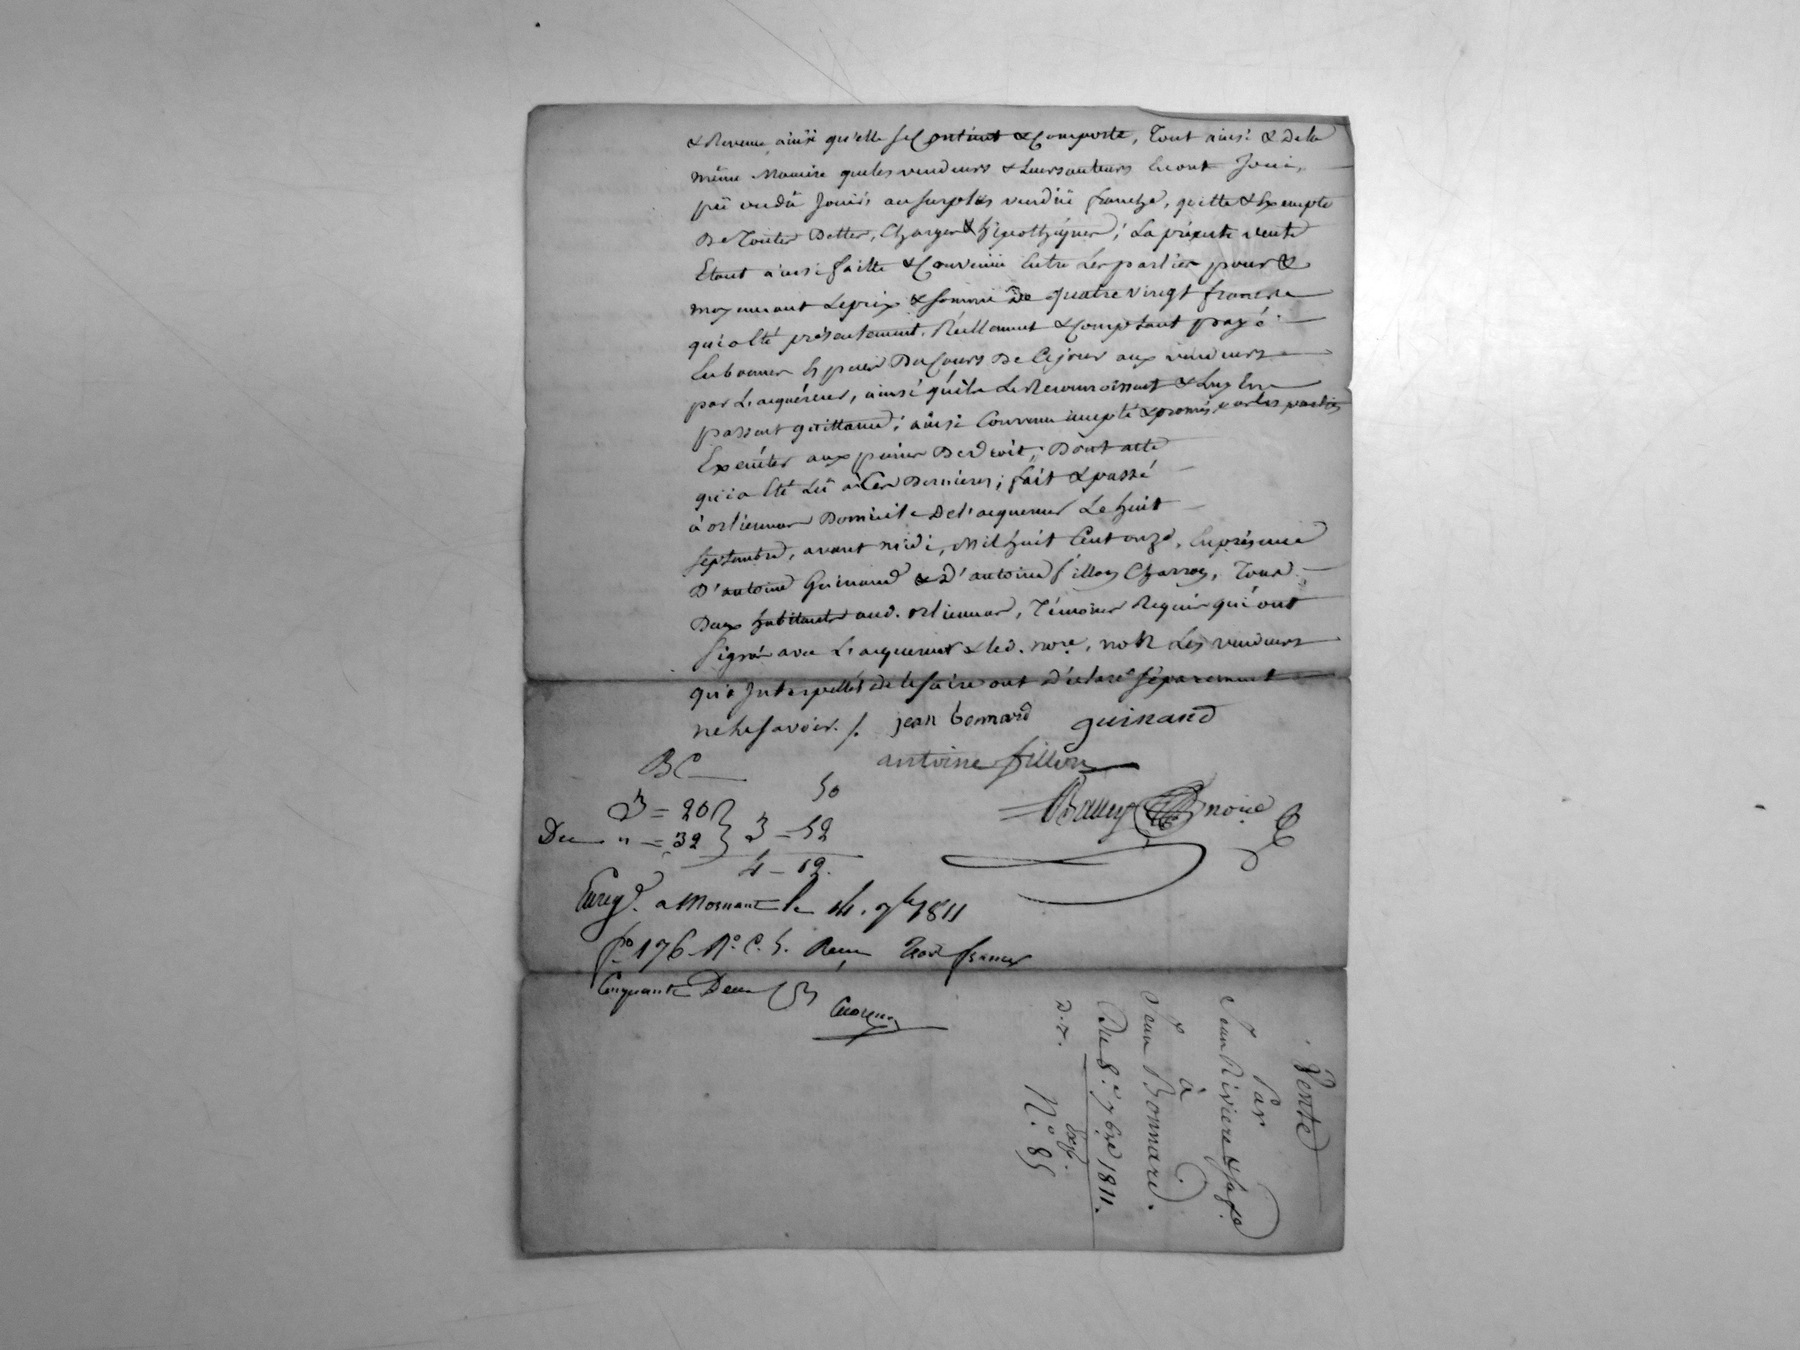 & Revenu ainsi qu'elle se Contient & Comporte, Tout ainsi & de la
même Maniere que les vendeurs & Leurs auteurs en ont Joui,
pû ou dû Jouir au surplus vendüe franche, quitte & Exempte
De Toutes Dettes, Charges & hipothéques; La présente vente
Etant ainsi faitte & Convenüe Entre Les parties pour &
moyennant Le prix & somme De quatre vingt francs
qui a Eté présentement, Réellement & Comptant payé
En bonnes Espèces Du Cours De Ce jour aux vendeurs
par L'acquéreur, ainsi qu'ils Le Reconnoissent & Luy En
passent quittance; ainsi Convenu accepté & promis par les parties
Exécuter aux peines De droit; Dont acte
qui a Eté Lû à Ces Dernieres; fait & passé
à orliennas Domicile De l'acquereur Le huit
septembre, avant midi, Mil huit Cent onze, En présence
D'antoine Guinand & D'antoine fillon Charron, Tous
Deux habitants aud. orliennas, Témoins Requis qui ont
signé avec L'acquereur & led. nore. non Les vendeurs
qui Interpellés de le faire ont Déclaré séparement
ne le savoir. /. jean bonnard guinand
antoine fillon
BC
50
3 = 20
3 - 52
Dec " = 32
4 - 12.
nore
Enregé. a Mornant le 14. 7bre 1811
fo 176 Ro. C. 5. Reçu Trois francs
Cinquante Deux C
Vente
Par
Jean Riviere & sage
à
Jean Bonnard.
Du 8.e 7bre 1811.
Exp.
D. 7. N.o 85